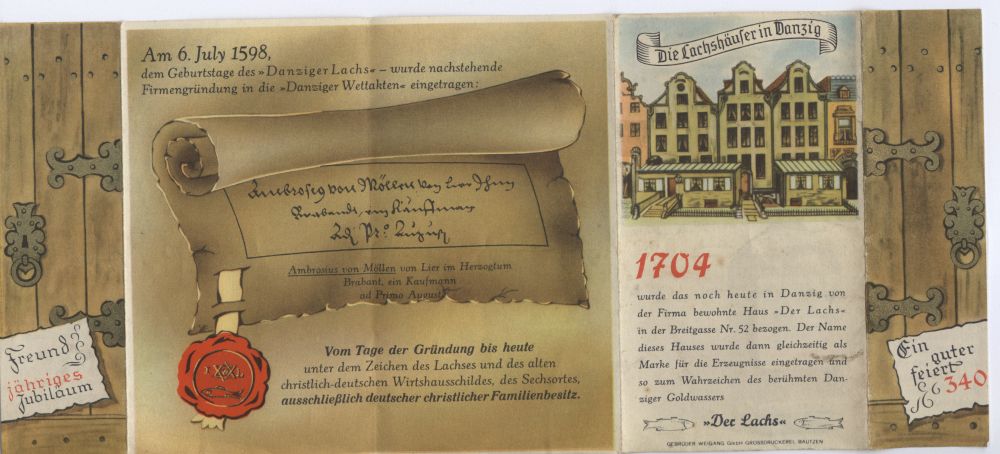 Freund
jähriges
Jubiläum
Am 6. July 1598,
dem Geburtstage des »Danziger Lachs« – wurde nachstehende
Firmengründung in die »Danziger Wettakten« eingetragen:
von Möllen von Lier
ein Kauffman
Ambrosius von Möllen von Lier im Herzogtum
Brabant, ein Kaufmann
ad Primo August
Vom Tage der Gründung bis heute
unter dem Zeichen des Lachses und des alten
christlich-deutschen Wirtshausschildes, des Sechsortes,
ausschließlich deutscher christlicher Familienbesitz.
Die Lachshäuser in Danzig
1704
wurde das noch heute in Danzig von
der Firma bewohnte Haus »Der Lachs«
in der Breitgasse Nr. 52 bezogen. Der Name
dieses Hauses wurde dann gleichzeitig als
Marke für die Erzeugnisse eingetragen und
so zum Wahrzeichen des berühmten Dan-
ziger Goldwassers
»Der Lachs«
GEBRÜDER WEIGANG GmbH GROSSDRUCKEREI BAUTZEN
Ein
guter
feiert
340